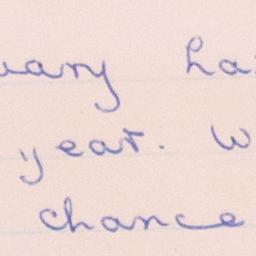 uary ha
year. W
chance